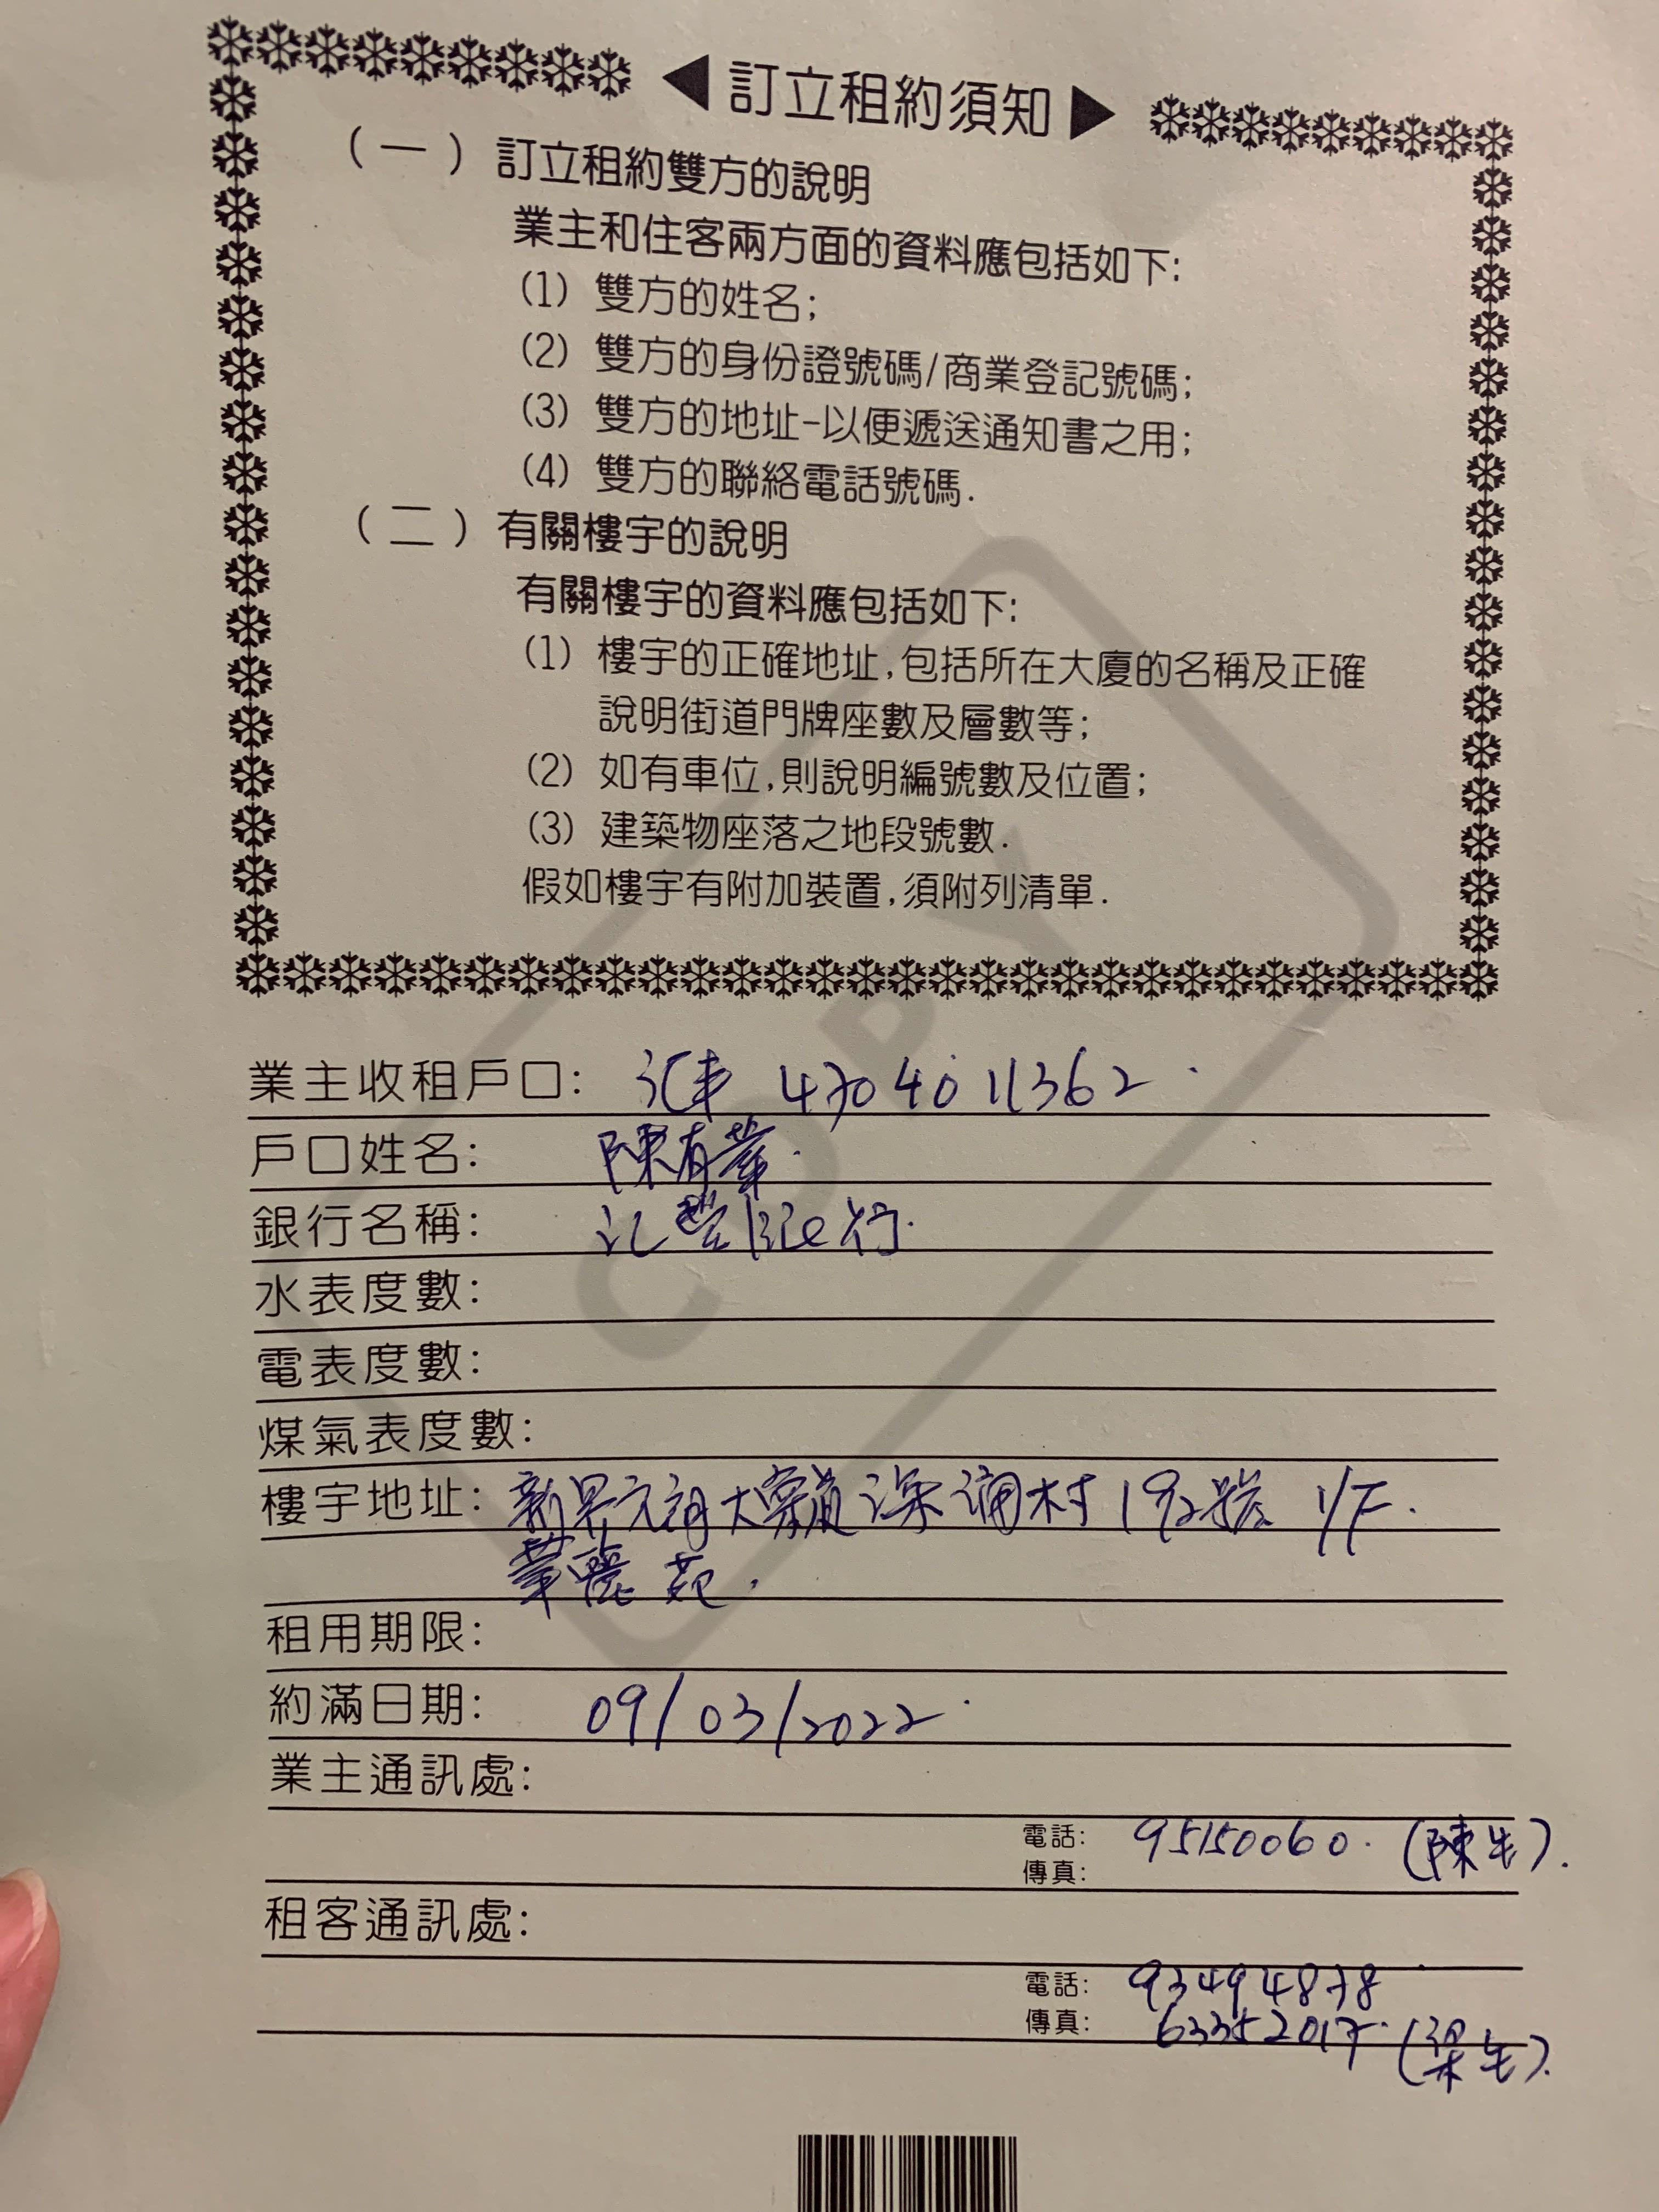 訂立租約須知
（一）訂立租約雙方的說明
業主和住客兩方面的資料應包括如下:
(1) 雙方的姓名;
(2) 雙方的身份證號碼/商業登記號碼;
(3) 雙方的地址-以便遞送通知書之用;
(4) 雙方的聯絡電話號碼.
（二）有關樓宇的說明
有關樓宇的資料應包括如下:
(1) 樓宇的正確地址,包括所在大廈的名稱及正確
說明街道門牌座數及層數等;
(2) 如有車位,則說明編號數及位置;
(3) 建築物座落之地段號數.
假如樓宇有附加裝置,須附列清單.
COPY
業主收租戶口: 汇丰 4704011362
戶口姓名: 陳有業
銀行名稱: 汇豐銀行.
水表度數:
電表度數:
煤氣表度數:
樓宇地址: 新界元朗大棠道深涌村192號 1/F.
華麗苑.
租用期限:
約滿日期: 09/03/2022
業主通訊處:
電話: 95150060. (陳生).
傳真:
租客通訊處:
電話: 93494878
傳真: 63352017. (梁生).